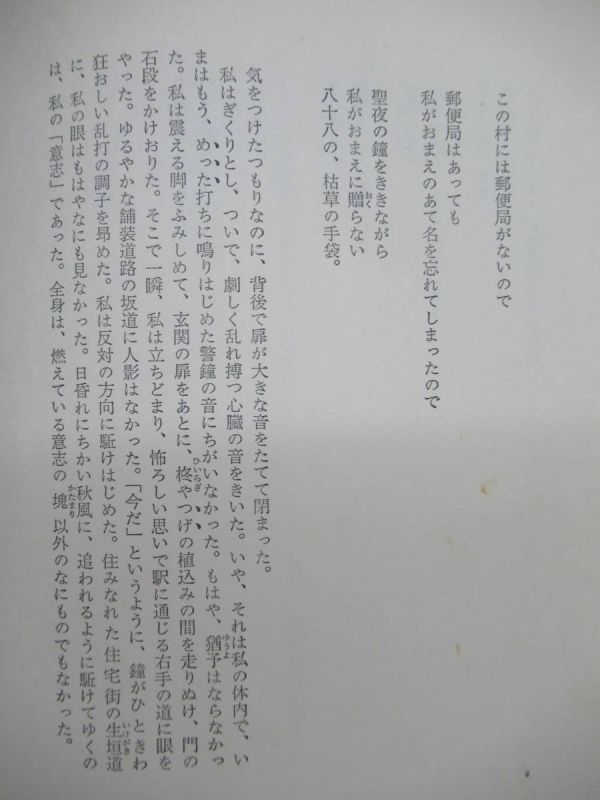 この村には郵便局がないので
郵便局はあっても
私がおまえのあて名を忘れてしまったので
聖夜の鐘をききながら
私がおまえに贈らない
八十八の、枯草の手袋。
気をつけたつもりなのに、背後で扉が大きな音をたてて閉まった。
私はぎくりとし、ついで、劇しく乱れ搏つ心臓の音をきいた。いや、それは私の体内で、い
まはもう、めった打ちに鳴りはじめた警鐘の音にちがいなかった。もはや、猶予はならなかっ
た。私は震える脚をふみしめて、玄関の扉をあとに、柊やつげの植込みの間を走りぬけ、門の
石段をかけおりた。そこで一瞬、私は立ちどまり、怖ろしい思いで駅に通じる右手の道に眼を
やった。ゆるやかな舗装道路の坂道に人影はなかった。「今だ」というように、鐘がひときわ
狂おしい乱打の調子を昂めた。私は反対の方向に駈けはじめた。住みなれた住宅街の生垣道
に、私の眼はもはやなにも見なかった。日昏れにちかい秋風に、追われるように駈けてゆくの
は、私の「意志」であった。全身は、燃えている意志の塊以外のなにものでもなかった。